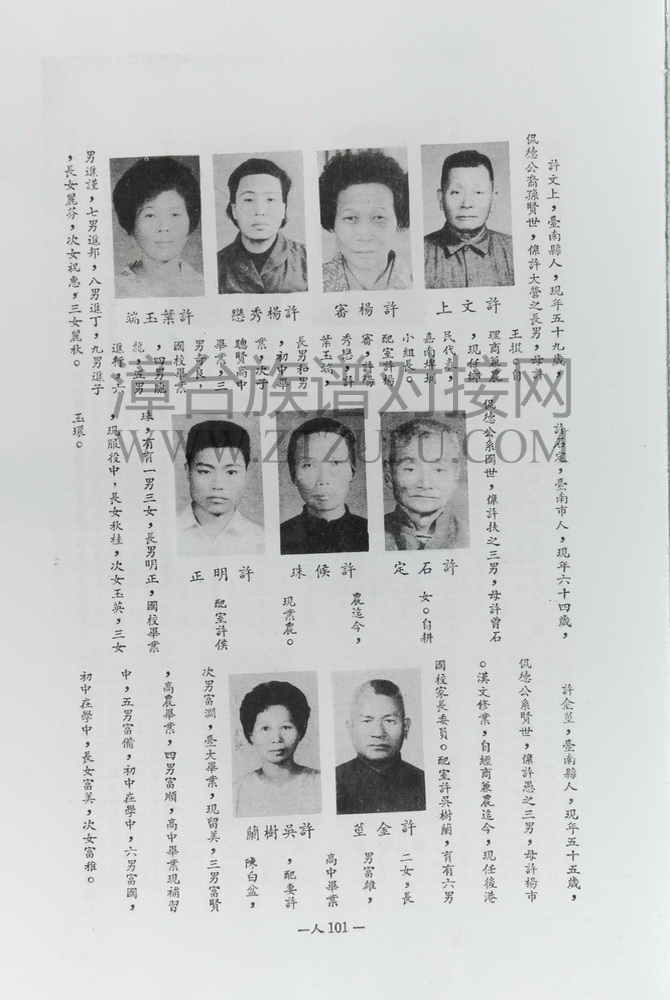 許文上,臺南縣人,現年五十九歲,
侃德公裔孫賢世,係許大營之長男,母許
王掇。自
理商兼農
,現任縣
民代表,
嘉南埤圳
小組長。
配室許楊
審,許楊
秀戀,許
葉玉端,
長男和男
,初中畢
業,次子
聰賢高中
畢業,三
男奇良,
國校畢業
,四男龍
龍,五男
進,六
男進謹,七男進邦,八男進丁,九男進子
,長女麗芬,次女祝惠,三女麗秋。
許文上
許楊審
許楊秀戀
許葉玉端
許石定,臺南市人,現年六十四歲,
侃德公系國世,係許扶之三男,母許曾石
女。自耕
農迄今,
現業農。
配室許侯
珠,育有一男三女,長男明正,國校畢業
,現服役中,長女秋桂,次女玉英,三女
玉環。
許石定
許候珠
許明正
許金莖,臺南縣人,現年五十五歲,
侃德公系賢世,係許愚之三男,母許楊市
。漢文修業,自經商兼農迄今,現任後港
國校家長委員。配室許吳樹蘭,育有六男
二女,長
男富雄,
高中畢業
,配妻許
陳白盆,
次男富澗,臺大畢業,現留美,三男富賢
,高農畢業,四男富順,高中畢業現補習
中,五男富備,初中在學中,六男富國,
初中在學中,長女富美,次女富雅。
許金莖
許吳樹蘭
—人101—
漳台族谱对接网
WWW.ZTZUPU.COM